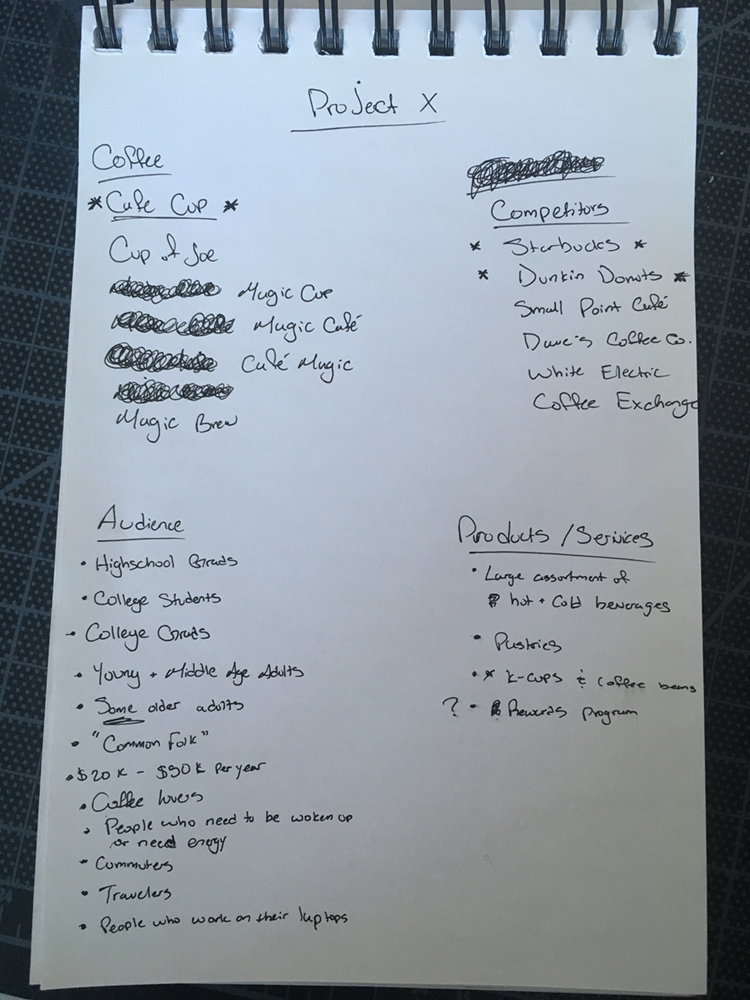 Project X
Coffee
* Cute Cup *
Cup of Joe
Magic Cup
Magic Café
Café Magic
Magic Brew
Competitors
* Starbucks *
* Dunkin Donuts *
Small Point Café
Dave's Coffee Co.
White Electric
Coffee Exchange
Audience
• Highschool Grads
• College Students
• College Grads
• Young + Middle Age Adults
• Some older adults
• "Common Folk"
• $20k - $90k per year
• Coffee lovers
• People who need to be woken up
or need energy
• Commuters
• Travelers
• People who work on their laptops
Products / Services
• Large assortment of
hot + cold beverages
• Pastries
• * K-cups & coffee beans
? • Rewards program